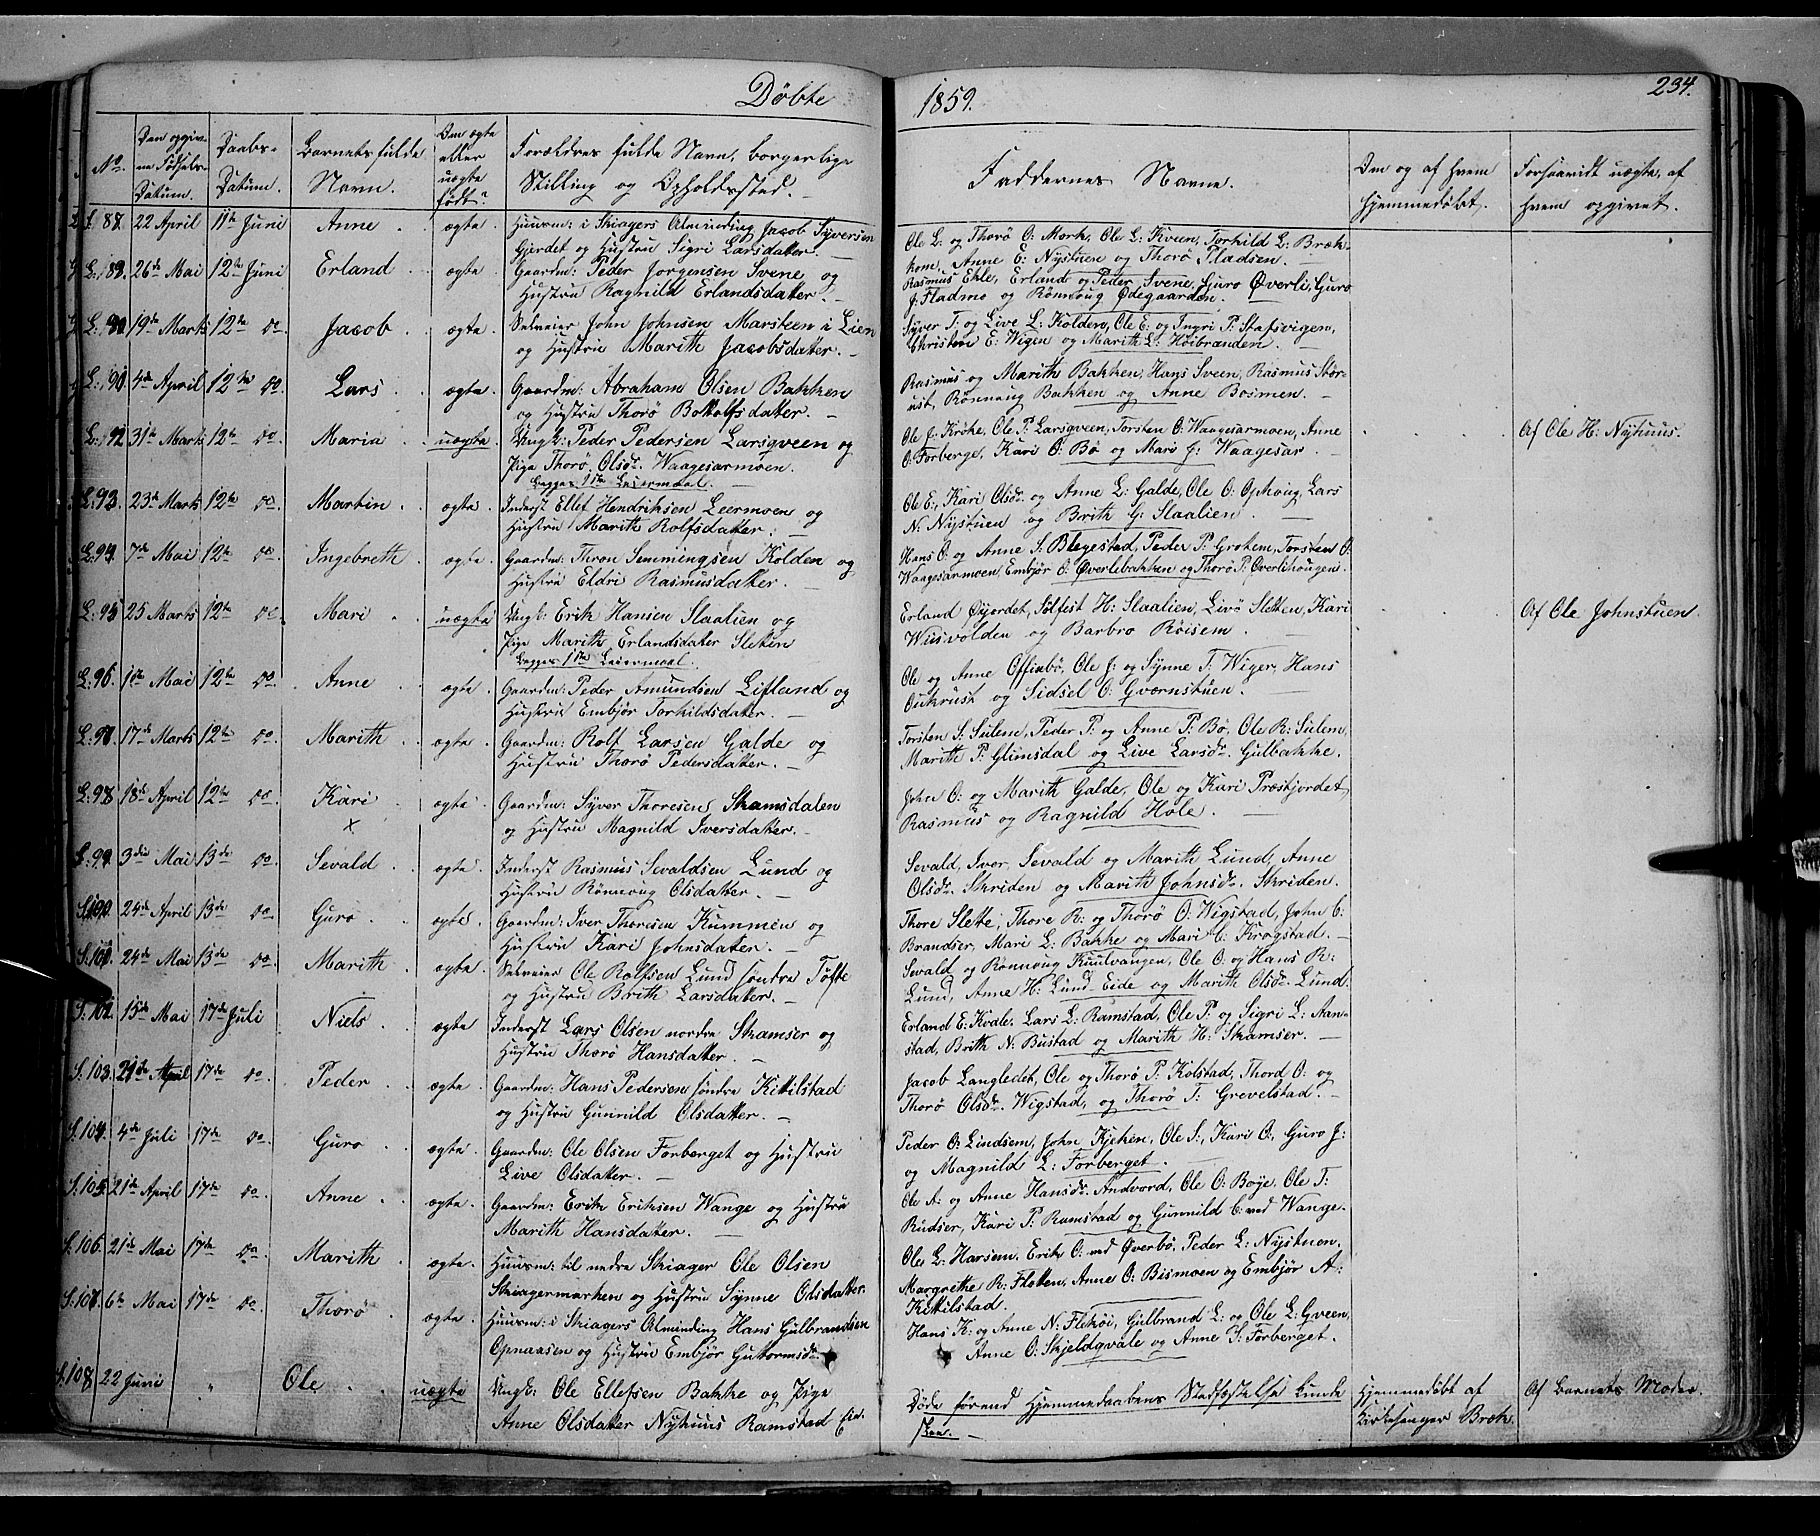 Døbte
1859.
234.
No.
Den opgiv-
ne Fødsels-
Datum.
Daabs-
Datum.
Barnets fulde
Navn.
Om ægte
eller
uægte
født?
Forældres fulde Navn, borgerlige
Stilling og Opholdssted.
Faddernes Navne.
Om og af hvem
hjemmedøbt.
Forsaavidt uægte, af
hvem opgivet.
S. 88. 22 April 11te Juni Anne ægte Huusm: i Skiagers Alminding Jacob Syversen
Gjerdet og Hustru Sigri Larsdatter. —
Ole L: og Thorø O: Mork, Ole L: Kveen, Torkild L: Bræk-
kom, Anne E: Nystuen og Thorø Pladsen.
L. 89. 26de Mai 12te Juni Erland ægte Gaardm: Peder Jorgensen Svene og
Hustru Ragnild Erlandsdatter. —
Rasmus Ekle, Erland og Peder Svene, Guro Øverli, Guro
J. Fladmo og Rønnoug Ødegaarden.
L. 90. 19de Marts 12te do. Jacob ægte Selveier John Johnsen Marsteen i Lien
og Hustru Marith Jacobsdatter. —
Syver T: og Live L: Kolden, Ole E: og Ingri P: Stafsvigen,
Christen E: Wigen og Marith L: Høibranden. —
L: 91 4de April 12te do. Lars ægte Gaardm: Abraham Olsen Bakken
og Hustru Thorø Botolfsdatter. —
Rasmus og Marith Bakken, Hans Sveen, Rasmus Stør-
ust, Rønnoug Bakken og Anne Bosmen. —
L: 92 31te Marts 12te do. Maria uægte Ungk: Peder Pedersen Larsqveen og
Pige Thorø Olsdr. Waagesarmoen.
Begges 1ste Leiermaal. —
Ole J: Krøke, Ole P: Larsqveen, Torsten O: Waagesarmoen, Anne
O: Forberge, Kari O: Bø og Mari G: Waagesar. —
Af Ole H: Nyhuus.
L: 93. 23de Marts 12te do. Martin ægte Inderst Ellef Hendriksen Leermoen og
Hustru Marith Rolfsdatter.
Ole E:, Kari Olsdr. og Anne L: Galde, Ole O: Ophoug, Lars
N. Nystuen og Brith G: Slaalien. —
L: 94. 7de Mai 12te do. Ingebreth ægte Gaardm: Thron Semmingsen Kolden og
Hustru Eldri Rasmusdatter. —
Hans O: og Anne S: Blegestad, Peder P: Grohem, Torsten O:
Waagesarmoen, Embjør O: Øverlebakken og Thorø P: Øverlihougen.
L: 95 25 Marts 12te do. Mari uægte Ungk: Erik Hansen Slaalien og
Pige Marith Erlandsdatter Sletten
Begges 1ste Leiermaal.
Erland Øyjordet, Sølfest H: Slaalien, Livø Sletten, Kari
Wusvolden og Barbro Røisem. —
Af Ole Johnstuen.
L: 96. 1ste Mai 12te do. Anne ægte Gaardm: Peder Amundsen Lifland og
Hustru Embjør Torkildsdatter. —
Ole og Anne Offinbø, Ole J: og Synne T: Wiger, Hans
Oukrust og Sidsel O: Gvernstuen. —
L: 97. 17de Marts 12te do. Marith ægte Gaardm: Rolf Larsen Galde og
Hustru Thorø Pedersdatter. —
Torsten S: Sulem, Peder P: og Anne P: Bø, Ole R: Sulem,
Marith P: Glimsdal og Live Larsdr. Gulbakke.
L: 98 18de April 12te do. Kari ægte Gaardm: Syver Thoresen Skamsdalen
x og Hustru Magnild Iversdatter. —
John O: og Marith Galde, Ole og Kari Præstjordet,
Rasmus og Ragnild Hole. —
L: 99. 3die Mai 13de do. Sevald ægte Inderst Rasmus Sevaldsen Lund og
Hustru Rønnoug Olsdatter. —
Sevald, Iver, Sevald og Marith Lund, Anne
Olsdr. Skriden og Marith Johnsdr. Skriden.
S. 100. 24de April 13de do. Guro ægte Gaardm: Iver Thoresen Kummen og
Hustru Kari Johnsdatter. —
Thore Slette, Thore R: og Thorø O: Wigstad, John C:
Brandser, Mari L: Bakke og Mari C: Krogstad. —
S: 101. 24de Mai 13de do. Marith ægte Selveier Ole Rolfsen Lund søndre Tøfte
og Hustru Brith Larsdatter. —
Sevald og Rønnoug Kuulvangen, Ole O: og Hans R:
Lund, Anne H: Lund-Eide og Marith Olsdr. Lund.
S: 102. 15de Mai 17de Juli Niels ægte Inderst Lars Olsen nordre Skamser og
Hustru Thorø Hansdatter. —
Erland E: Kvale, Lars L: Ramstad, Ole P: og Sigri L: Aan-
stad, Brith N: Bustad og Marith H: Skamser. —
S: 103. 21de April 17de do. Peder ægte Gaardm: Hans Pedersen søndre Kittilstad
og Hustru Gunnild Olsdatter. —
Jacob Langledet, Ole og Thorø P: Kolstad, Thord O: og
Thorø Olsdr. Wigstad, og Thorø T: Grevelstad. —
S: 104. 4de Juli 17de do. Guro ægte Gaardm: Ole Olsen Forberget og Hustru
Live Olsdatter. —
Peder O: Lindsem, John Kjeken, Ole S:, Kari O:, Guro J:
og Magnild L: Forberget.
S. 105 21de April 17de do. Anne ægte Gaardm: Erik Eriksen Wange og Hustru
Marith Hansdatter. —
Ole A: og Anne Hansdr. Andvord, Ole O: Boje, Ole T:
Rudser, Kari P: Ramstad og Gunnild C: ved Wange.
S: 106. 21de Mai 17de do. Marith ægte. Huusm: til nedre Skiager Ole Olsen
Skiagermarken og Hustru Synne Olsdatter.
Ole L: Harsem, Erik O: ved Øverbø, Peder L: Nystuen,
Margrethe R: Fletten, Anne O: Bismoen og Embjør A:
Kittilstad.
S. 107 6te Mai 17de do. Thorø ægte. Huusm: i Skiagers Alminding Hans Gulbrandsen
Opnaasen og Hustru Embjør Guttormsdr.
Hans K: og Anne N: Flekøi, Gulbrand L: og Ole L: Gveen,
Anne O: Skjeldqvale og Anne S: Forberget.
S. 108 22 Juni " Ole uægte Ungk: Ole Ellefsen Bakke og Pige
Anne Olsdatter Nyhuus Ramstad Eie.
Døde førend Hjemmedaabens Stadfæstelse kunde
skee. —
Hjemmedøbt af
Kirkesanger Bræk.
Af Barnets Moder.